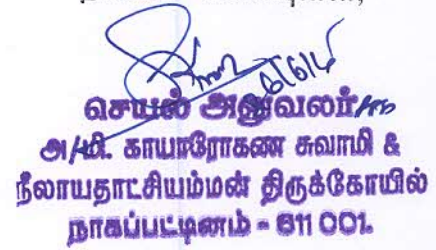 செயல் அலுவலர்
அ/மி. காயாரோகண சுவாமி &
நீலாயதாட்சியம்மன் திருக்கோயில்
நாகப்பட்டினம் - 611 001.